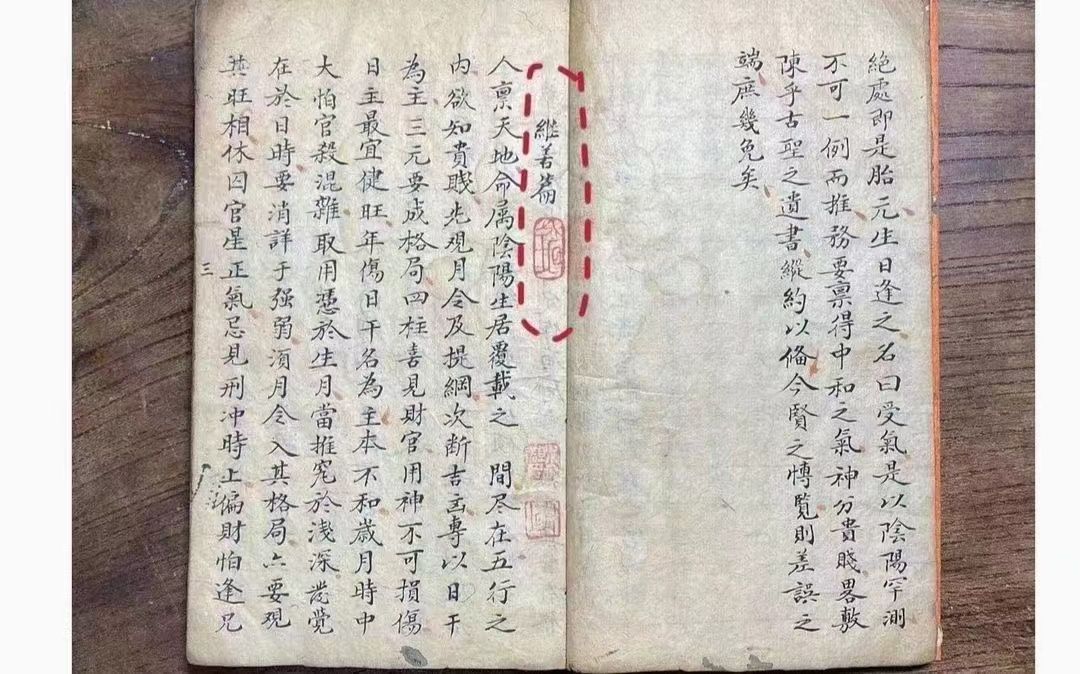 絕處即是胎元生日逢之名曰受氣是以陰陽罕測
不可一例而推務要禀得中和之氣神分貴賤畧敷
陳乎古聖之遺書縱約以俻今賢之愽覧則差誤之
端庶幾免矣
継善篇
人禀天地命属陰陽生居覆載之間尽在五行之
内欲知貴賤先观月令及提綱次断吉凶專以日干
為主三元要成格局四柱喜見財官用神不可損傷
日主最宜健旺年傷日干名為主本不和歲月時中
大怕官殺混雜取用憑於生月當推究於淺深發覺
在於日時要消詳于强弱須月令入其格局六要观
其旺相休囚官星正氣忌見刑冲時上偏財怕逢兄
三